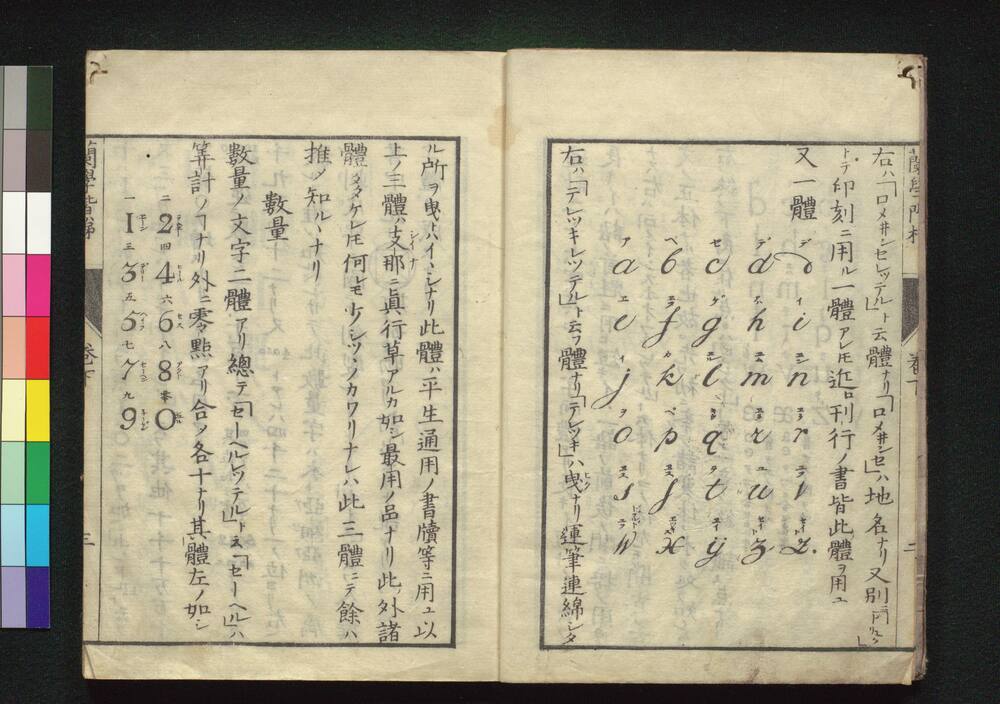 右ハ「ロメヰンセレッテル」ト云體ナリ「ロメヰンセ」ハ地名ナリ又別
トテ印刻ニ用ル一體アレ𪜈近ロ刊行ノ書皆此體ヲ用ユ
又一體
a b c d
e f g h i
j k l m n
o p q r r
s ſ t u
w x ij z z.
右ハ「テレッキレッテル」ト云フ體ナリ「テレッキ」ハ曳ナリ運筆連綿シタ
蘭學階梯
卷下
二
ル所ヲ曳トハイヽシナリ此體ハ平生通用ノ書牘等ニ用ユ以
上ノ三體ハ支那ニ眞行草アルカ如シ最用ノ品ナリ此外諸
體タケレ𪜈何レモ少シツヽノカワリナレハ此三體ニテ餘ハ
推メ知ルヽナリ
數量
數量ノ文字二體アリ總テ「セーヘルレッテル」ト云「セーヘル」ハ
筭計ノヿナリ外ニ零點アリ合メ各十ナリ其體左ノ如シ
二 2 四 4 六 6 八 8 零 0
一 1 三 3 五 5 七 7 九 9
蘭學階梯
卷下
三